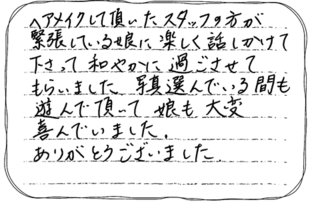 ヘアメイクして頂いたスタッフの方が
緊張している娘に楽しく話しかけて
下さって和やかに過ごさせて
もらいました。写真選んでいる間も
遊んで頂いて娘も大変
喜んでいました。
ありがとうございました